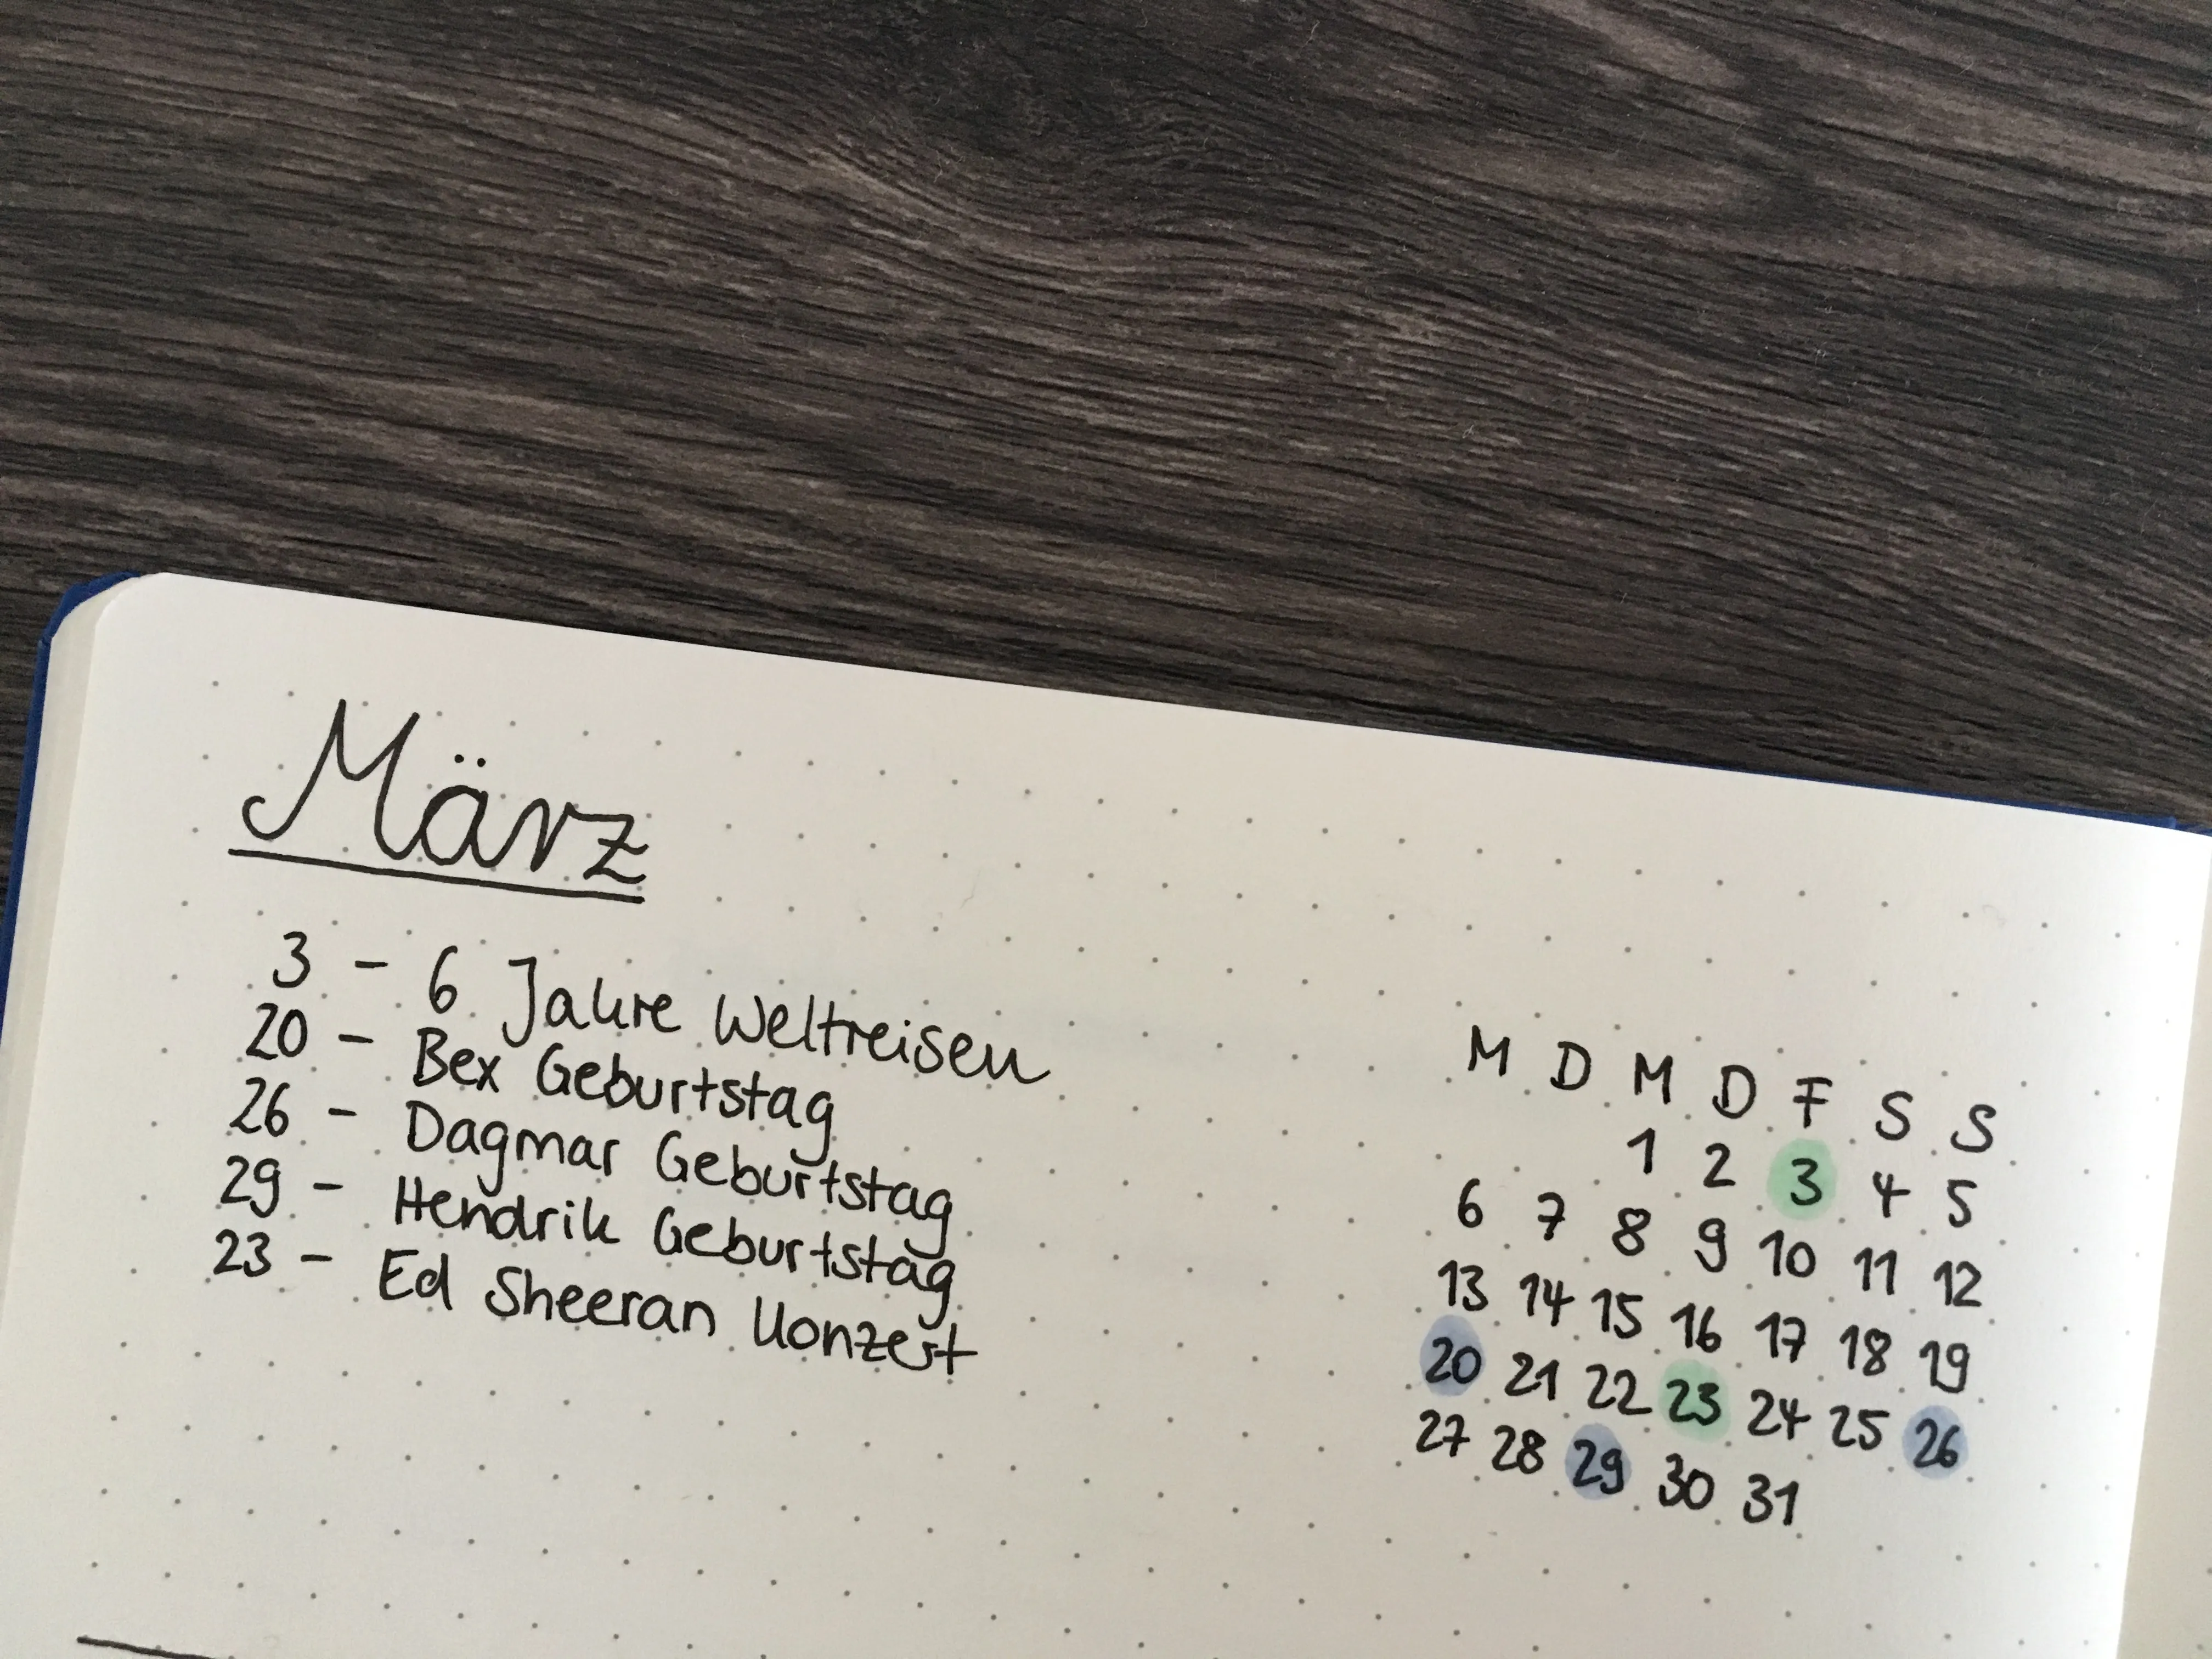 März
3 - 6 Jahre Weltreisen
20 - Bex Geburtstag
26 - Dagmar Geburtstag
29 - Hendrik Geburtstag
23 - Ed Sheeran Konzert
M D M D F S S
1 2 3 4 5
6 7 8 9 10 11 12
13 14 15 16 17 18 19
20 21 22 23 24 25 26
27 28 29 30 31